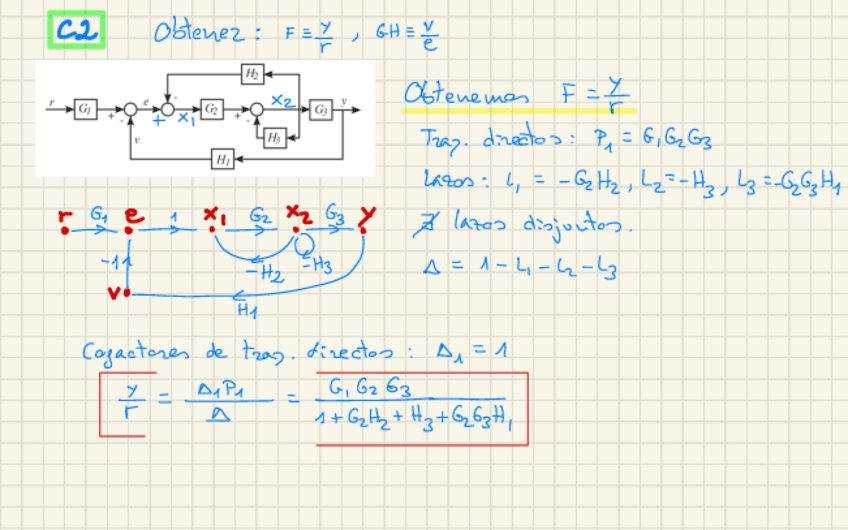 C2 Obtener : F ≡ y/r , GH ≡ v/e
H2
r G1 + - e + - x1 G2 + - x2 G3 y
v H3
H1
Obtenemos F = y/r
Tray. directos : P1 = G1G2G3
Lazos : L1 = -G2H2, L2 = -H3, L3 = -G2G3H1
∄ lazos disjuntos.
Δ = 1 - L1 - L2 - L3
r G1 e 1 x1 G2 x2 G3 y
-1 -H2 -H3
v H1
Cofactores de tray. directos : Δ1 = 1
y/r = Δ1P1/Δ = G1G2G3/(1+G2H2+H3+G2G3H1)